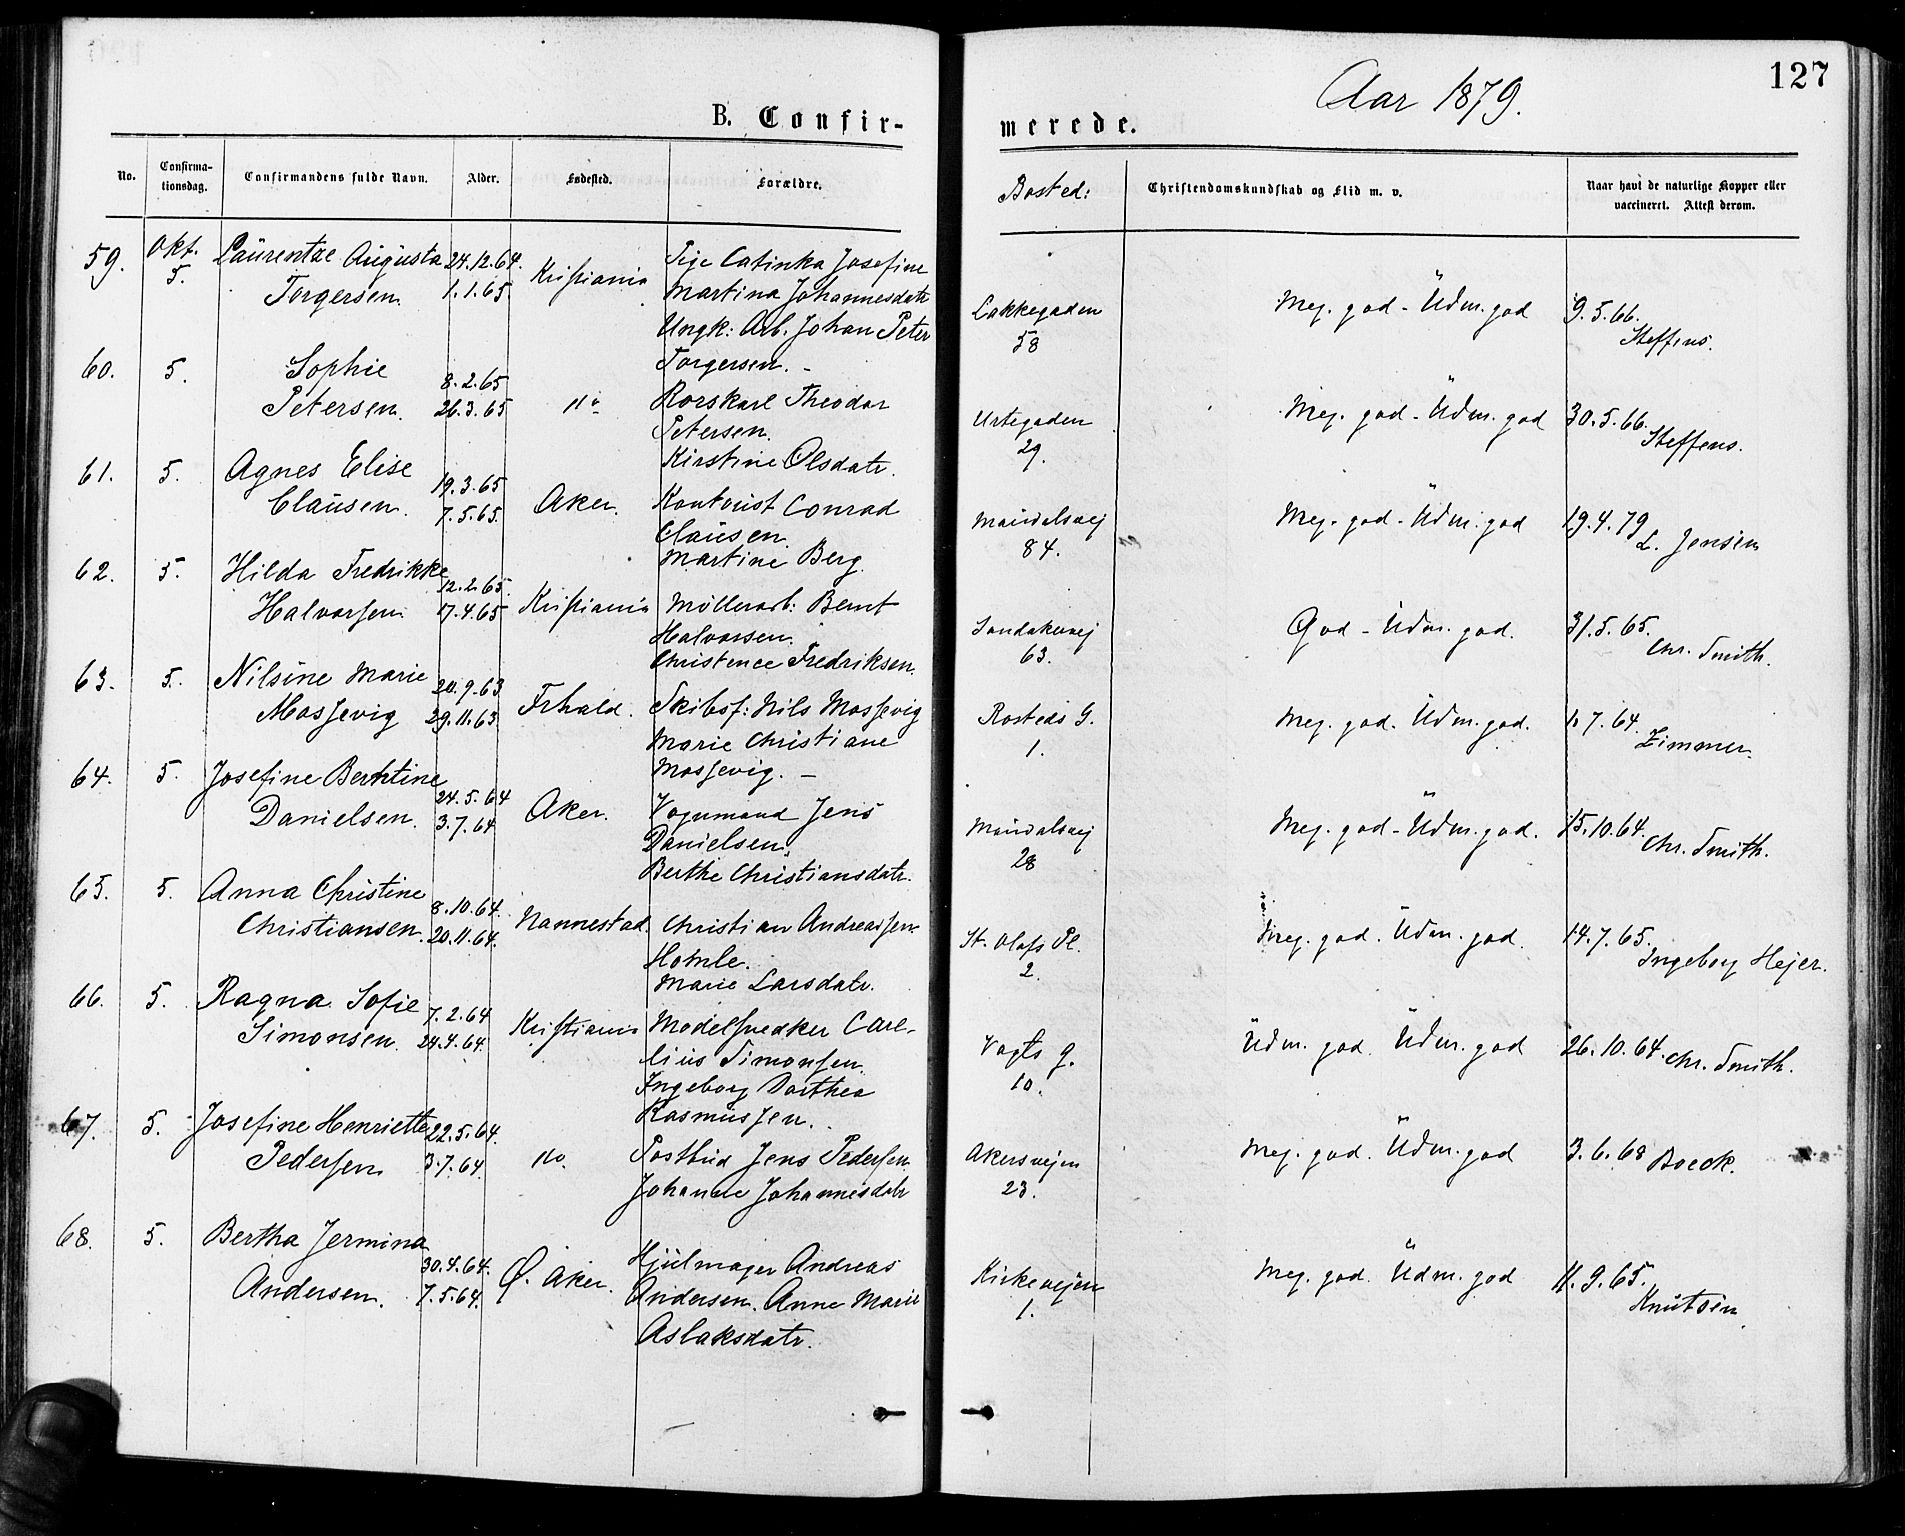 127
Aar 1879.
B. Confir-
merede.
No.
Confirma-
tionsdag.
Confirmandens fulde Navn.
Alder.
Fødested.
Forældre.
Bosted:
Christendomskundskab og Flid m. v.
Naar havt de naturlige Kopper eller
vaccineret. Attest derom.
59. Okt. 5. Laurentze Augusta
Torgersen.
24.12.64.
1.1.65.
Kristiania
Pige Catinka Josefine
Martina Johannesdatr
Ungk: Arb. Johan Peter
Torgersen. -
Lakkegaden
58
Meg. god - Udm. god
9.5.66.
Steffens.
60. 5. Sophie
Petersen.
8.2.65
26.3.65
do
Rorskarl Theodor
Petersen.
Kirstine Olsdatr.
Urtegaden
29.
Meg. god - Udm. god
30.5.66.
Steffens.
61. 5. Agnes Elise
Clausen.
19.3.65
7.5.65.
Aker.
Kontorist Conrad
Clausen.
Martine Berg.
Maridalsvej
84.
Meg. god - Udm. god
19.4.79
L. Jensen
62. 5. Hilda Fredrikke
Halvorsen.
12.2.65.
17.4.65
Kristiania
Möllerarb: Bernt
Halvorsen.
Christence Fredriksen.
Sandakervej
63.
God - Udm. god.
31.5.65.
Chr. Smith.
63. 5. Nilsine Marie
Mossevig
20.9.63
29.11.63.
Frhald.
Skibsf: Nils Mossevig
Marie Christiane
Mossevig. -
Rosteds G.
1.
Meg. god. Udm. god.
1.7.64.
Zimmer.
64. 5. Josefine Berntine
Danielsen.
24.5.64
3.7.64
Aker.
Vognmand Jens
Danielsen.
Berthe Christiansdatr.
Maridalsvej
28
Meg. god - Udm. god.
15.10.64.
Chr. Smith.
65. 5. Anna Christine
Christiansen.
8.10.64.
20.11.64.
Nannestad.
Christian Andreassen
Homle.
Marie Larsdatr.
St. Olafs Pl.
2.
Meg. god. Udm. god.
14.7.65.
Ingeborg Hejer.
66. 5. Ragna Sofie
Simonsen.
7.2.64
24.4.64.
Kristiania
Modelsnedker Care-
lius Simonsen.
Ingeborg Dorthea
Rasmussen.
Vogts g.
10.
Udm. god. Udm. god
26.10.64. Chr. Smith.
67. 5. Josefine Henriette
Pedersen
22.5.64.
3.7.64.
do.
Postbud Jens Pedersen
Johanne Johannesdatr
Akersvejen
23.
Meg. god. Udm. god
3.6.68 Boeck.
68. 5. Bertha Jermina
Andersen.
30.4.64.
7.5.64.
Ø. Aker.
Hjulmager Andreas
Andersen. Anne Marie
Aslaksdatr.
Kirkevejen
1.
Meg. god. Udm. god
11.9.65.
Knutsen.